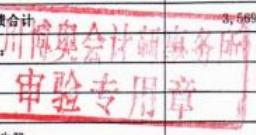 合计
3,569
川博奥会计师事务所
审验专用章